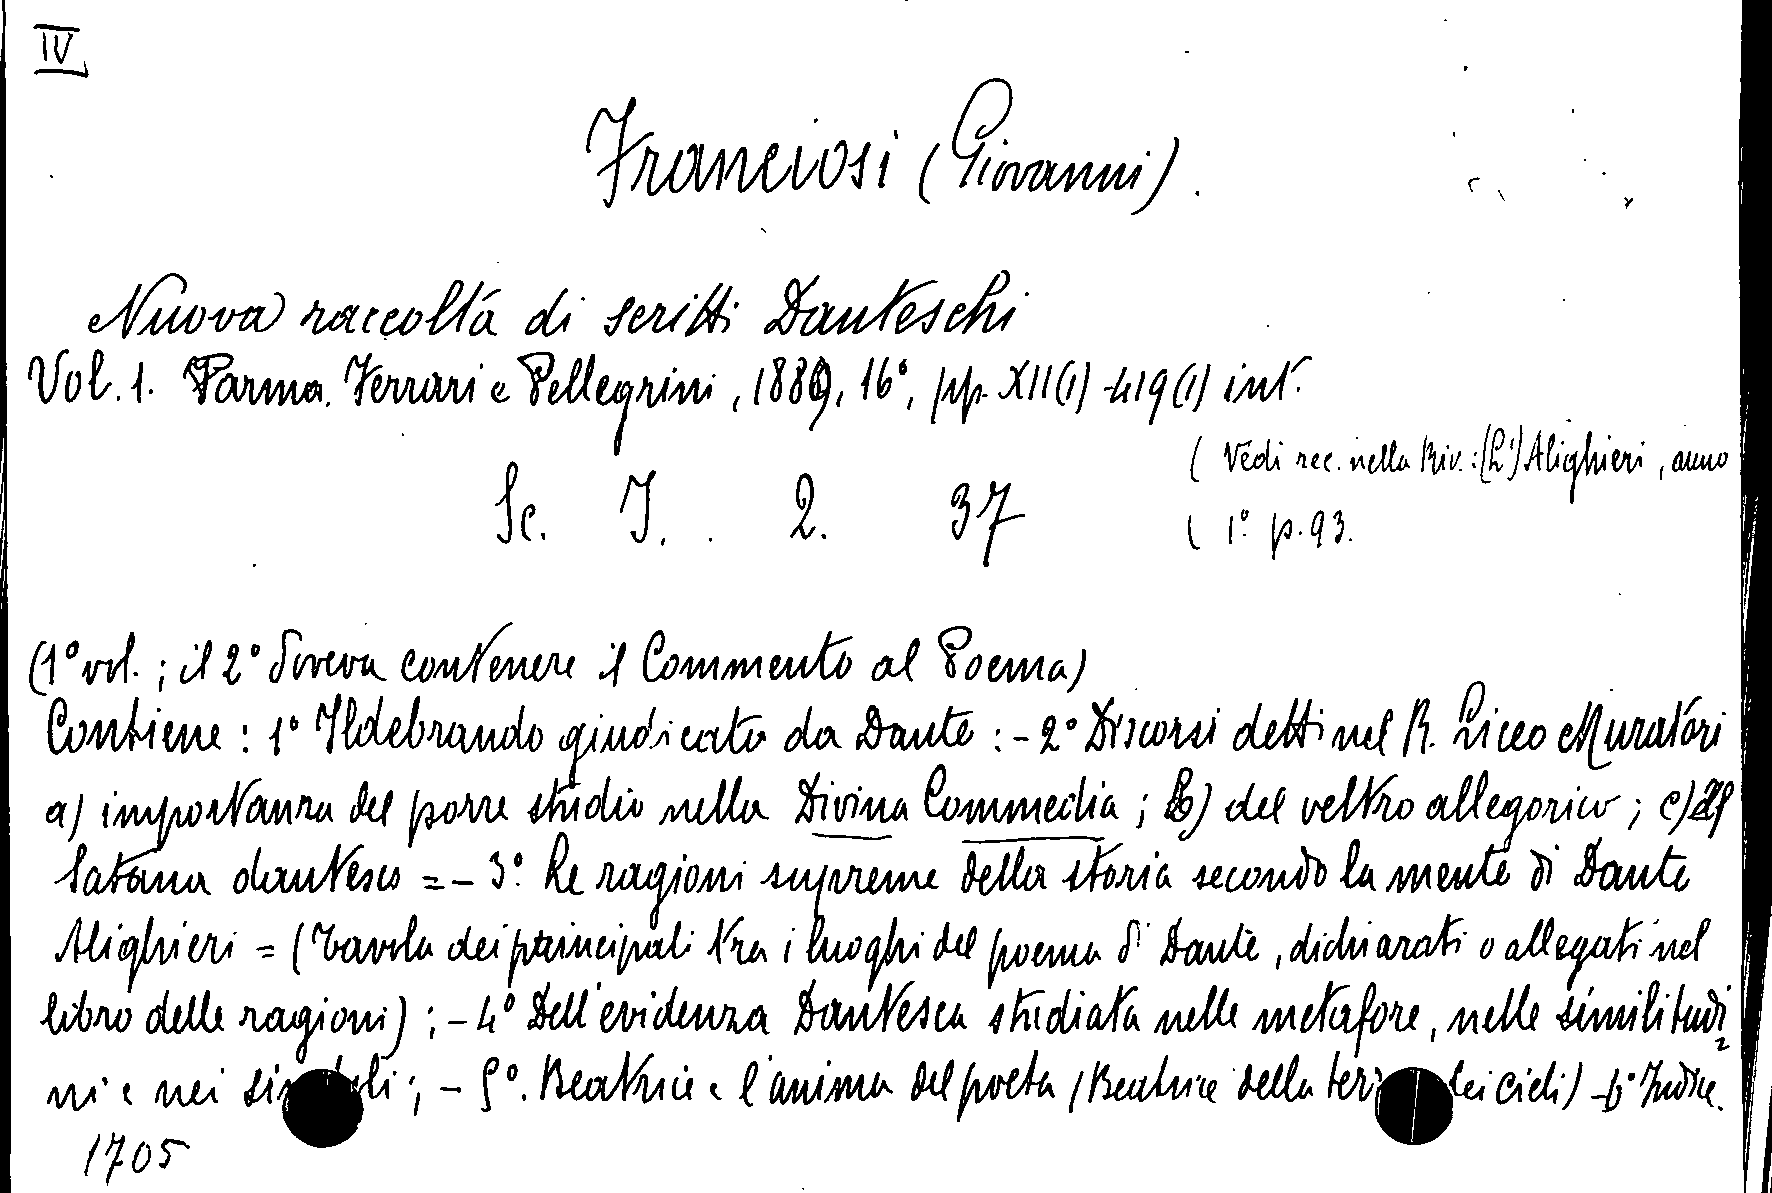 IV
Franciosi (Giovanni).
Nuova raccolta di scritti Danteschi
Vol. 1. Parma. Ferrari e Pellegrini, 1889, 16°, pp. XII(1) - 419 (1) int.
( Vedi rec. nella Riv.: (L') Alighieri, anno
Sc. I. 2. 37
( 1° p. 93.
(1° vol.; il 2° doveva contenere il Commento al Poema)
Contiene: 1° Ildebrando giudicato da Dante: - 2° Discorsi detti nel R. Liceo Muratori
a) importanza del porre studio nella Divina Commedia; b) del veltro allegorico; c) Il
Satana dantesco = - 3°. Le ragioni supreme della storia secondo la mente di Dante
Alighieri = (Tavola dei principali tra i luoghi del poema di Dante, dichiarati o allegati nel
libro delle ragioni); - 4° Dell'evidenza Dantesca studiata nelle metafore, nelle similitudi=
ni e nei simboli; - 5°. Beatrice e l'anima del poeta (Beatrice della terra dei cieli) - 6° Indice.
1705